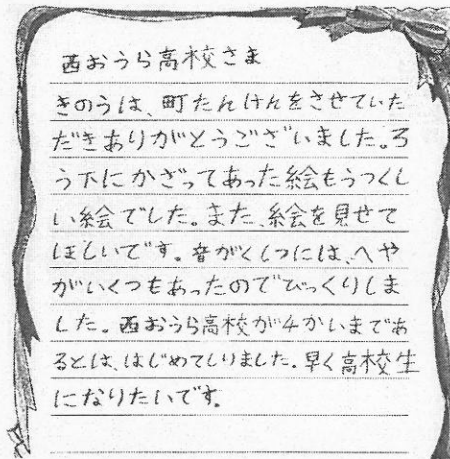 西おうら高校さま
きのうは、町たんけんをさせていた
だきありがとうございました。ろ
う下にかざってあった絵もうつくし
い絵でした。また、絵を見せて
ほしいです。音がくしつには、へや
がいくつもあったのでびっくりしま
した。西おうら高校が4かいまであ
るとは、はじめてしりました。早く高校生
になりたいです。